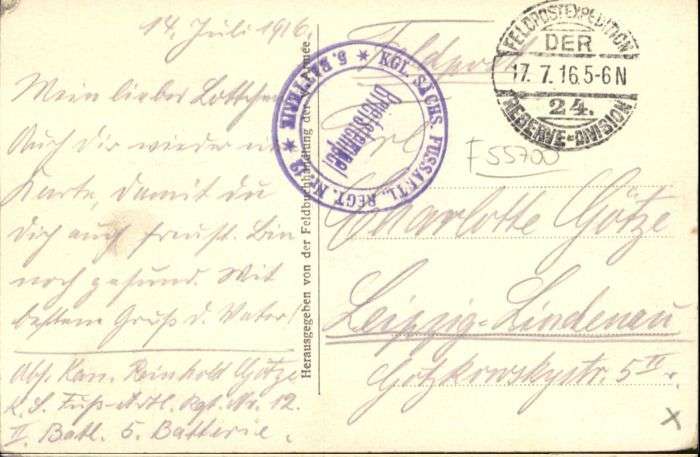 14. Juli 1916.
Mein lieber Lottchen
Auch dir wieder eine
Karte, damit du
dich auch freust. Bin
noch gesund. Mit
bestem Gruß d. Vater!
Abs. Kan. Reinhold Götze
K. S. Fuß-Artl. Rgt. Nr. 12.
II. Batl. 5. Batterie.
Herausgegeben von der Feldbuchhandlung der Armee
Feldpost
KGL. SÄCHS. FUSSARTL. REGT. No. 12 * 5. BATTERIE *
Briefstempel
FELDPOSTEXPEDITION
DER
17. 7. 16. 5-6 N
24.
RESERVE-DIVISION
F 55700
Charlotte Götze
Leipzig-Lindenau
Gotzkowskystr. 5 IV r.
x